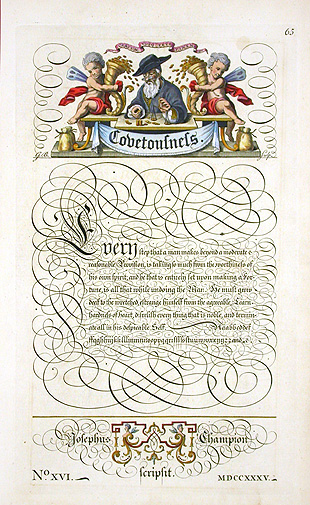 65
Covetousneſs.
Every step that a man makes beyond a moderate &
reasonable Provision, is taking so much from the worthiness of
his own spirit; and he that is entirely set upon making a For-
tune, is all that while undoing the Man. He must grow
deaf to the wretched, estrange himself from the agreeable, learn
hardness of heart, disrelish every thing that is noble, and termin-
ate all in his despicable Self.
Josephus Champion
scripsit.
No. XVI.
MDCCXXXV.